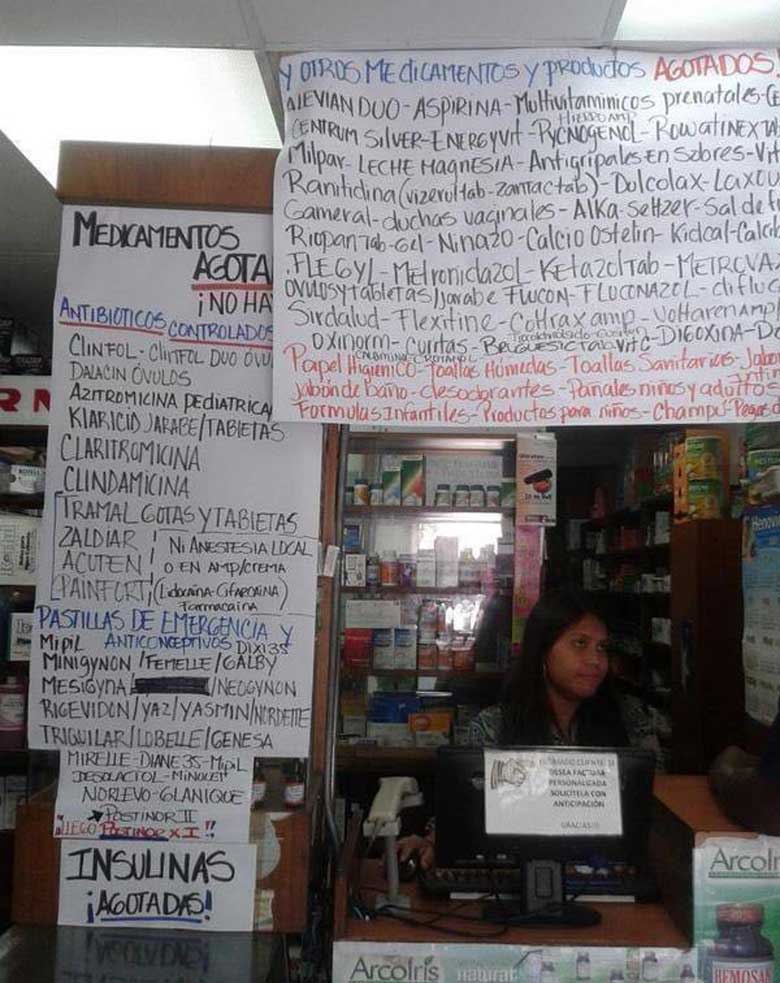 Y OTROS MEDICAMENTOS Y PRODUCTOS AGOTADOS
ALEVIAN DUO - ASPIRINA - Multivitaminicos prenatales - CE
HIERRO AMP
CENTRUM SILVER - ENERGYVIT - PYCNOGENOL - ROWATINEX TA
Milpar - LECHE MAGNESIA - Antigripales En Sobres - Vit
Ranitidina (vizerul tab - Zantac tab) - Dolcolax - LAXO
Gameral - duchas vaginales - Alka-Seltzer - Sal de
Riopan Tab - Gel - Ninazo - Calcio Ostelin - Kidcal - Calcib
FLEGYL - Metronidazol - KETAZOL Tab - METROVA
OVULOS Y TABLETAS / jarabe FLUCON - FLUCONAZOL - diflu
Sirdalud - Flexitine - Coltrax amp - Voltaren AMP
Oxinorm - curitas - Vit C - DIGOXINA - D
Papel Higienico - Toallas Húmedas - Toallas Sanitarias - Jabon
jabón de baño - desodorantes - Pañales niños y adultos
Formulas Infantiles - Productos para niños - Champu - Pega
MEDICAMENTOS
AGOTA
¡NO HA
ANTIBIOTICOS CONTROLADOS
CLINFOL - CLINFOL DUO ÓVU
DALACIN ÓVULOS
AZITROMICINA PEDIATRICA
KLARICID JARABE/TABLETAS
CLARITROMICINA
CLINDAMICINA
TRAMAL GOTAS Y TABLETAS
ZALDIAR
NI ANESTESIA LOCAL
ACUTEN
O EN AMP/CREMA
PAINFORT
(Lidocaina - Cifarcaina)
Farmacaina
PASTILLAS DE EMERGENCIA Y
ANTICONCEPTIVOS
MIPIL DIXI 35
MINIGYNON / FEMELLE / GALBY
MESIGYNA / NEOGYNON
RIGEVIDON / YAZ / YASMIN / NORDETTE
TRIQUILAR / LOBELLE / GENESA
MIRELLE - DIANE 35 - MIPIL
DESOLACTOL - MINULETT
NORLEVO - GLANIQUE
POSTINOR II
¡LLEGO POSTINOR X 1!!
INSULINAS
¡AGOTADAS!
ESTIMADO CLIENTE SI
DESEA FACTURA
PERSONALIZADA
SOLICITELA CON
ANTICIPACIÓN
GRACIAS!!!
ArcoIris
ArcoIris natural
HEMOSAN